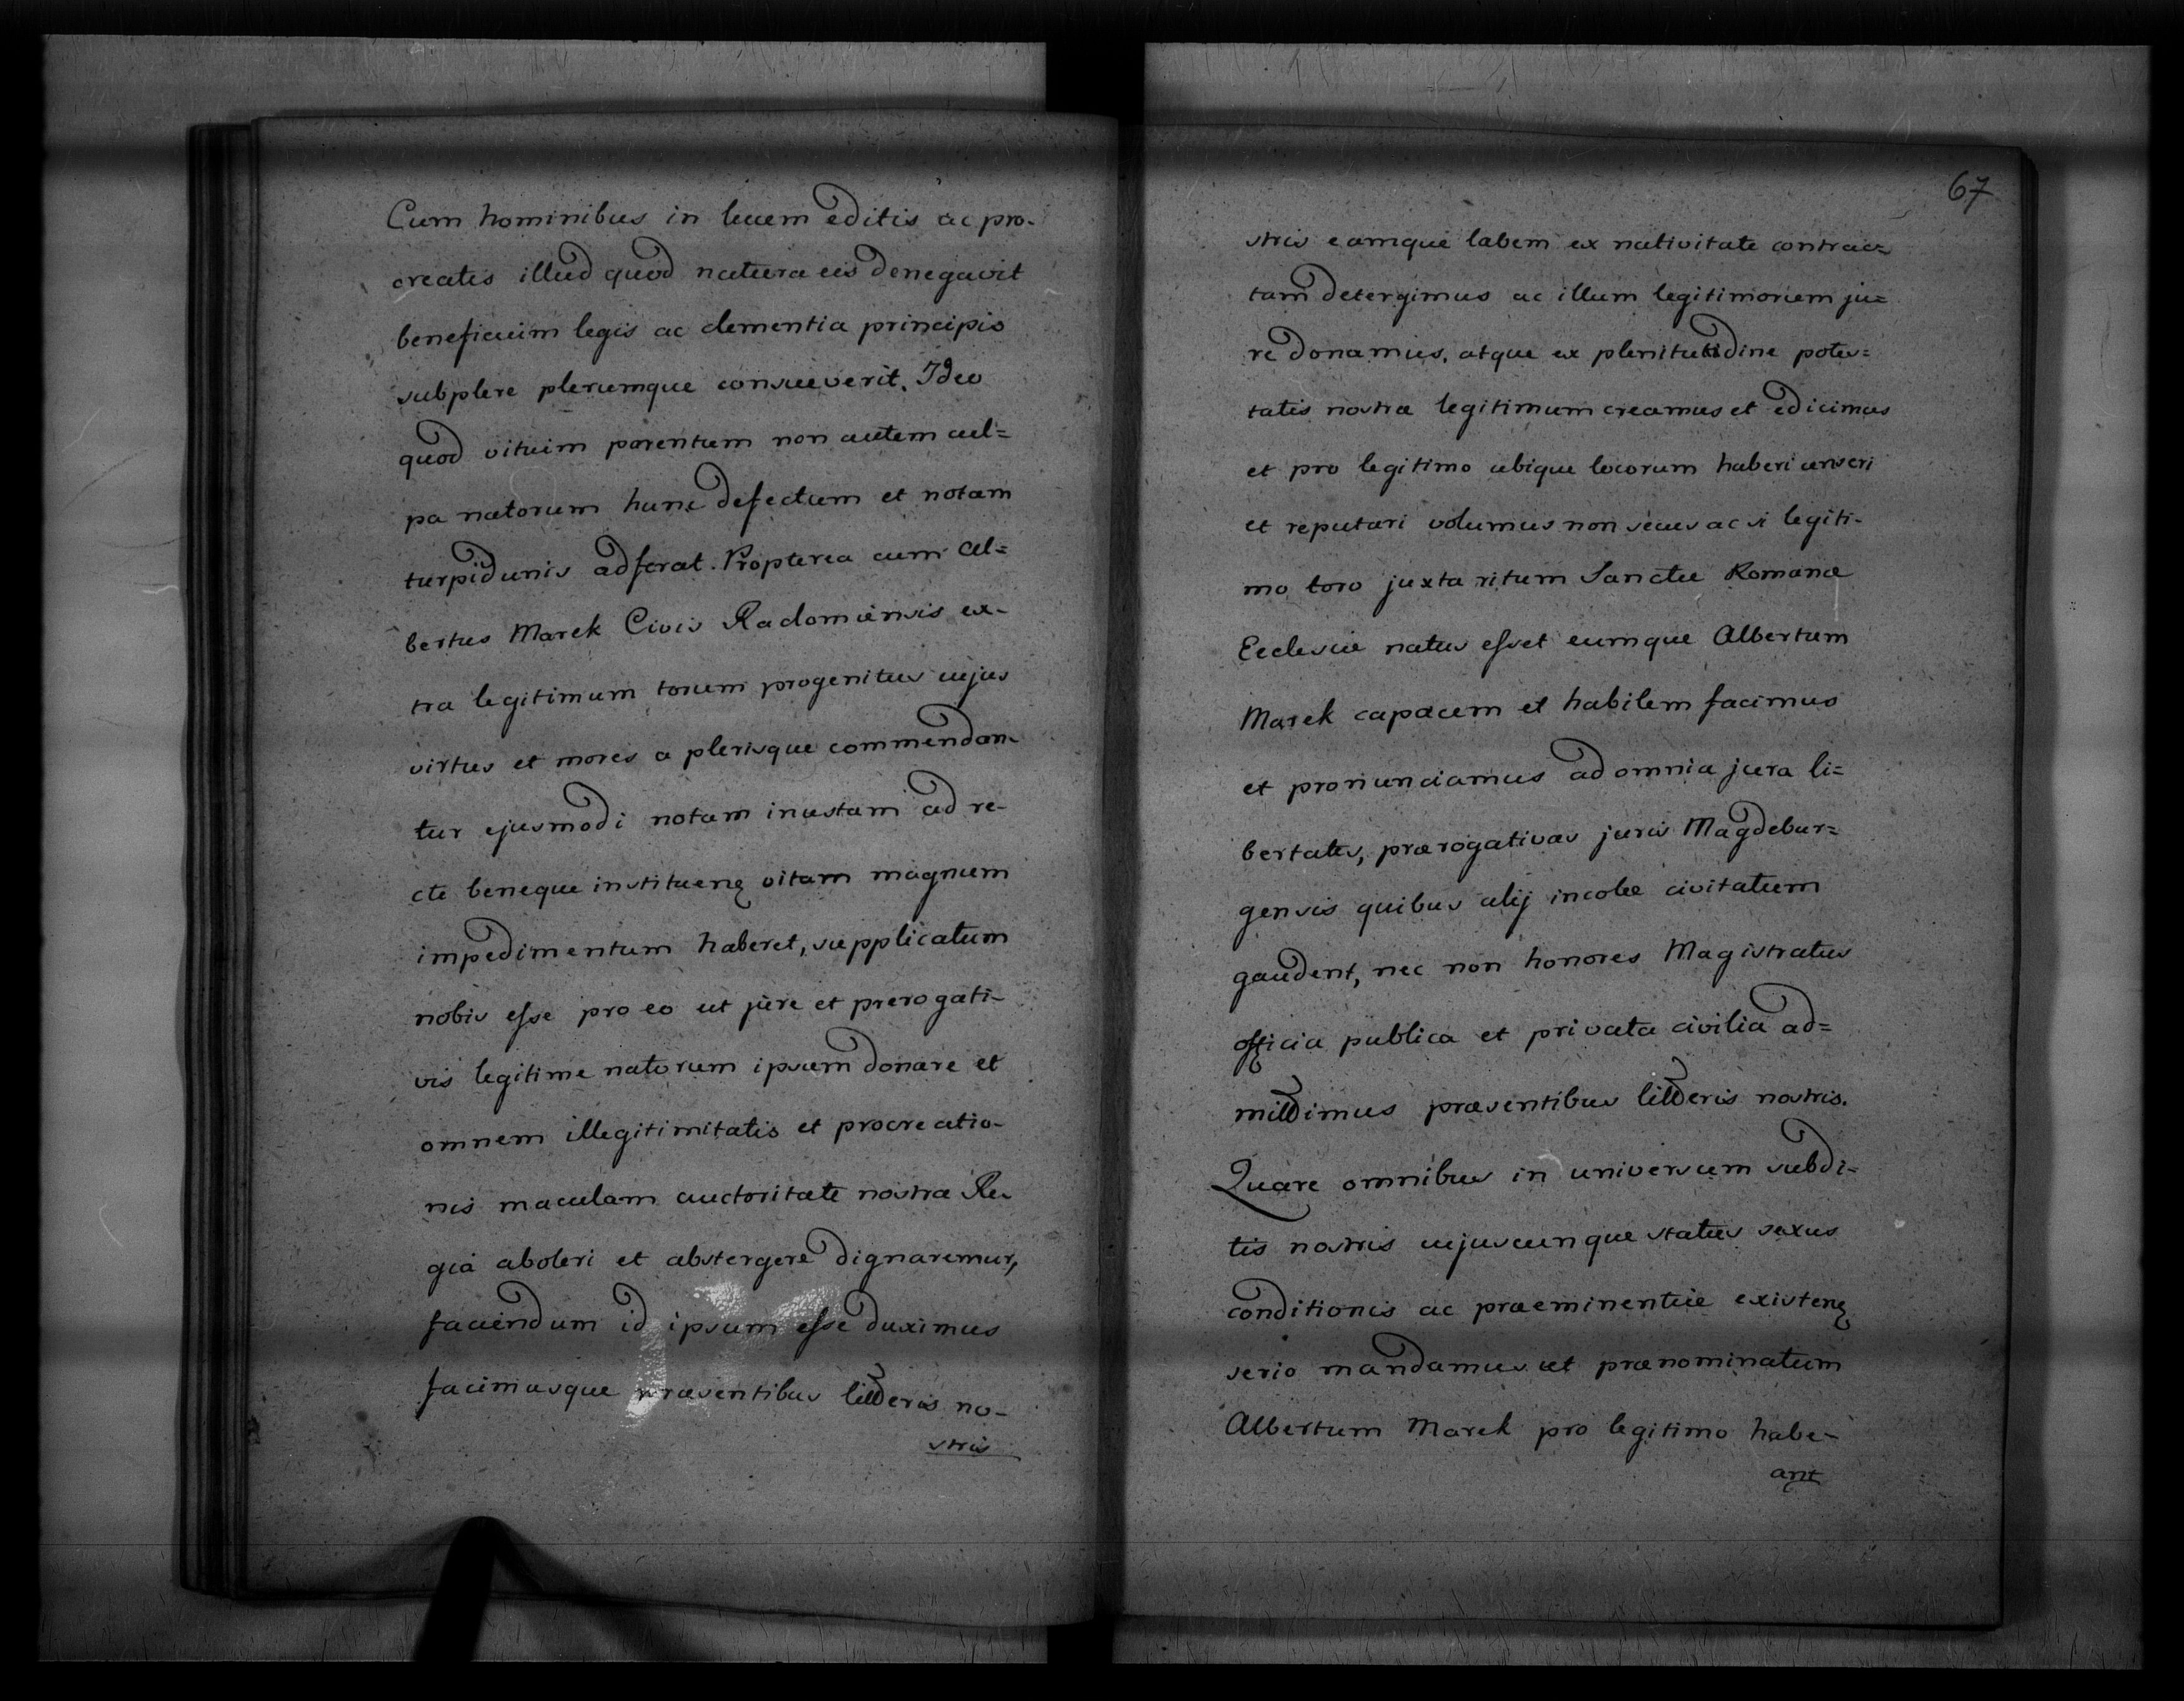 Cum hominibus in lucem editis ac pro-
creatis illud quod natura eis denegavit
beneficium legis ac clementia principis
subplere plerumque consueverit. Ideo
quod vitium parentum non autem cul=
pa natorum hunc defectum et notam
turpidunis adferat. Propterea cum Al=
bertus Marek Civis Radomiensis ex-
tra legitimum torum progenitus cujus
virtus et mores a plerisque commendan-
tur ejusmodi notam inustam ad re-
cte beneque instituenę vitam magnum
impedimentum haberet, supplicatum
nobis esse pro eo ut jure et prerogati-
vis legitime natorum ipsum donare et
omnem illegitimitatis et procreatio-
nis maculam auctoritate nostra Re-
gia aboleri et abstergere dignaremur,
faciendum id ipsum esse duximus
facimusque præsentibus litteris no-
stris
67
stris eamque labem ex nativitate contrac=
tam detergimus ac illum legitimorum ju=
re donamus, atque ex plenitutidine potes=
tatis nostræ legitimum creamus et edicimus
et pro legitimo ubique locorum haberi censeri
et reputari volumus non secus ac si legiti-
mo toro juxta ritum Sanctæ Romanæ
Ecclesiæ natus esset eumque Albertum
Marek capacem et habilem facimus
et pronunciamus ad omnia jura li=
bertates, prærogativas juris Magdebur=
gensis quibus alij incolæ civitatum
gaudent, nec non honores Magistratus
officia publica et privata civilia ad=
mittimus præsentibus litteris nostris.
Quare omnibus in universum subdi-
tis nostris cujuscunque status sexus
conditionis ac præeminentiæ existenę
serio mandamus ut prænominatum
Albertum Marek pro legitimo habe-
ant